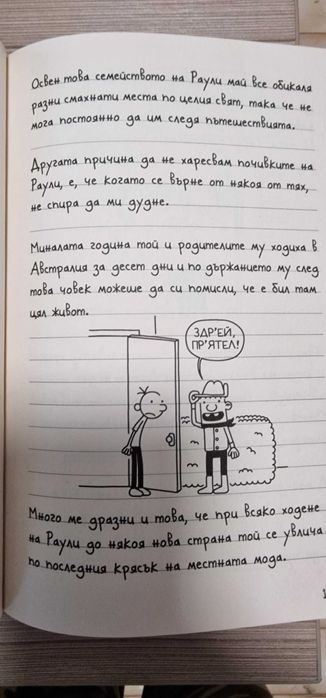 Освен това семейството на Раули май все обикаля
разни смахнати места по целия свят, така че не
мога постоянно да им следя пътешествията.
Другата причина да не харесвам почивките на
Раули, е, че когато се върне от някоя от тях,
не спира да ми дудне.
Миналата година той и родителите му ходиха в
Австралия за десет дни и по държанието му след
това човек можеше да си помисли, че е бил там
цял живот.
ЗДР'ЕЙ,
ПР'ЯТЕЛ!
Много ме дразни и това, че при всяко ходене
на Раули до някоя нова страна той се увлича
по последния крясък на местната мода.